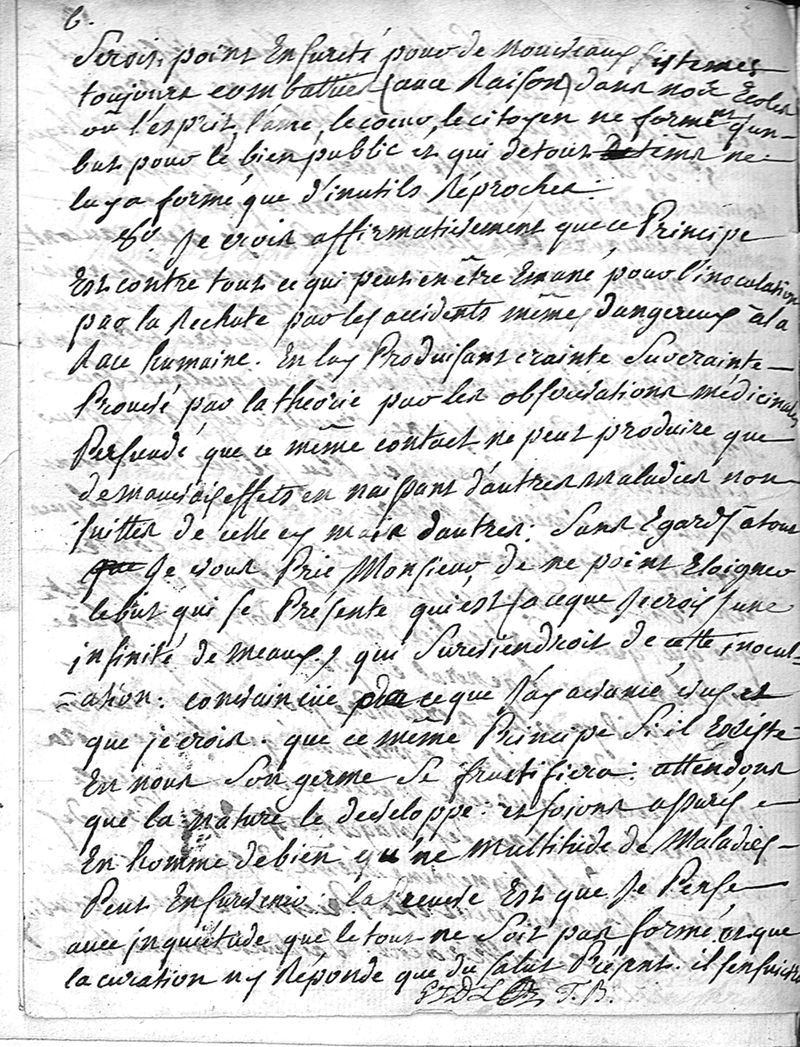 6.
Serois point En sureté pour de nouveaux sistemes
toujours combattües (avec Raison) dans notre Ecoles
où l'esprit, l'ame, le coeur, le citoyen ne forment qu'un
but pour le bien public et qui de tout tems ne
luy a formé que d'inutils Réproches.
8o. Je crois affirmativement que ce Principe
Est contre tout ce qui peut en être Emané, pour l'inoculation
par la Rechute par les accidents mêmes dangereux à la
Race humaine. En luy Produisant crainte
Prouvé par la théorie par les observations médicinales
Persuadé que ce même contact ne peut produire que
de mauvais effets en naissant d'autres maladies non
suittes de celle cy mais d'autres. Sans Egards a tout
Je vous Prie Monsieur, de ne point Eloigner
le but qui se Présente qui est (a ce que Je crois) une
infinité de meaux, qui surviendroit de cette inocul-
-ation. convaincüe ce que J'ay avancé et
que je crois. que ce même Principe S'il Existe
En nous Son germe Se fructifiera. attendons
que la nature le developpe. et soions assurés
En homme de bien qu'une multitude de Maladies
Peut En survenir. la Preuve Est que Je Pense
avec inquiétude que le tout ne Soit pas formé et que
la curation n'y Réponde que du Salut il s'ensuit
T. B.